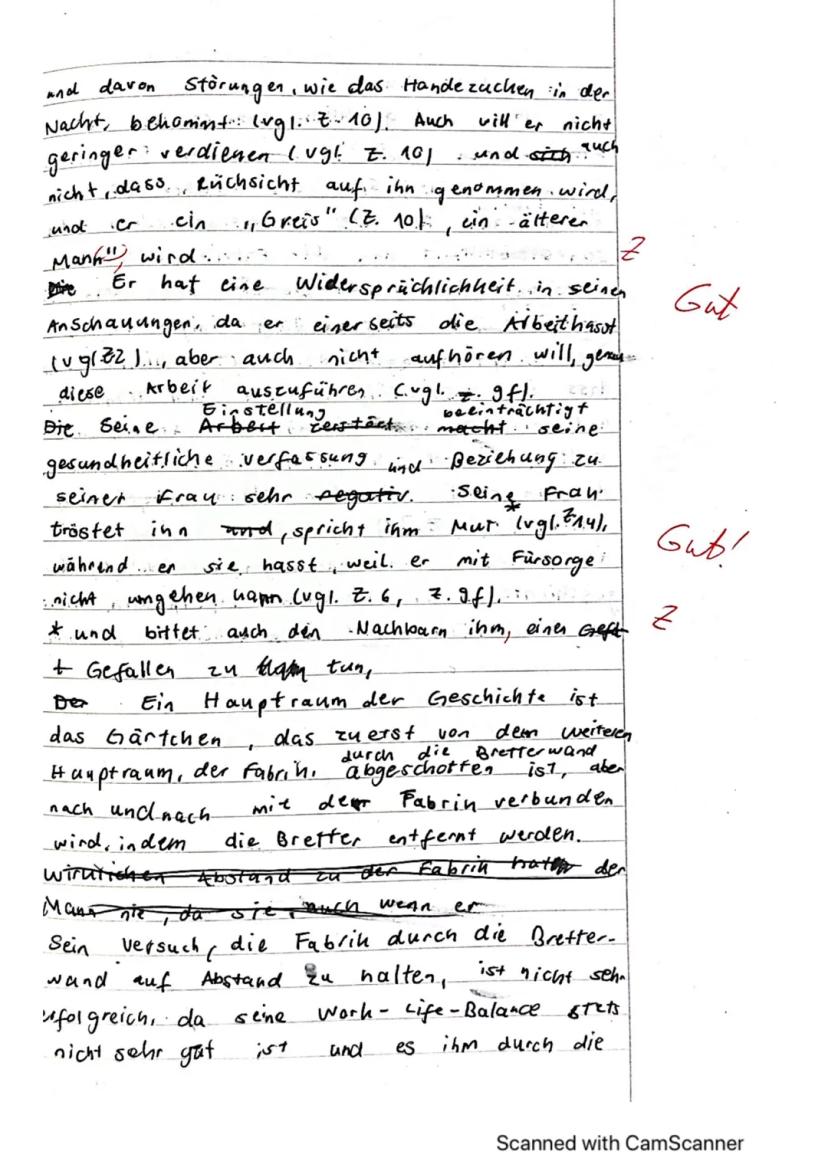 und davon Störungen, wie das Händezucken in der
Nacht, bekommt (vgl. Z. 10). Auch will er nicht
geringer verdienen (vgl. Z. 10) und sich auch
nicht, dass Rücksicht auf ihn genommen wird,
und er ein „Greis" (Z. 10), ein älterer
Mann", wird. Z
Die Er hat eine Widersprüchlichkeit in seinen
Gut
Anschauungen, da er einerseits die Arbeit hasst
(vgl Z2), aber auch nicht aufhören will, genau
diese Arbeit auszuführen (vgl. Z. 9f).
Einstellung beeinträchtigt
Die Seine Arbeit zerstört macht seine
gesundheitliche verfassung und Beziehung zu
seiner Frau sehr negativ. Seine Frau
tröstet ihn und, spricht ihm Mut * (vgl. Z14),
Gut!
während er sie hasst, weil er mit Fürsorge
nicht umgehen kann (vgl. Z. 6, Z. 9f).
* und bittet auch den Nachbarn ihm, einen Gefl Z
t Gefallen zu tun,
Der Ein Hauptraum der Geschichte ist
das Gärtchen, das zuerst von dem weiteren
durch die Bretterwand
Hauptraum, der Fabrik, abgeschotten ist, aber
nach und nach mit der Fabrik verbunden
wird, indem die Bretter entfernt werden.
wirklichen Abstand zu der Fabrik hatte der
Mann nie, da sie, auch wenn er
Sein Versuch, die Fabrik durch die Bretter-
wand auf Abstand zu halten, ist nicht seh
erfolgreich, da seine Work-Life-Balance stets
nicht sehr gut ist und es ihm durch die
Scanned with CamScanner